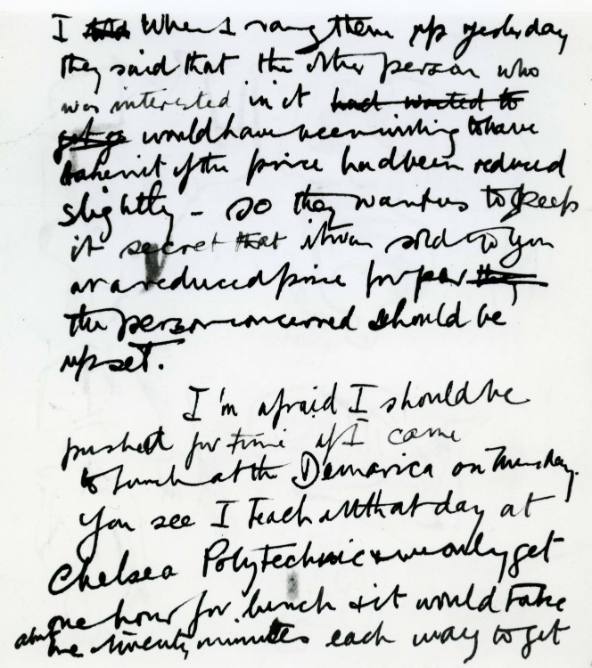 I When I rang them up yesterday
they said that the other person who
was interested in it had wanted to
get it would have been willing to have
taken it if the price had been reduced
slightly – so they want us to keep
it secret that it was sold to you
at a reduced price for fear they
the person concerned should be
upset.
I'm afraid I should be
pushed for time if I came
to lunch at the on Thursday.
You see I teach all that day at
Chelsea Polytechnic & we only get
one hour for lunch & it would take
about me twenty minutes each way to get